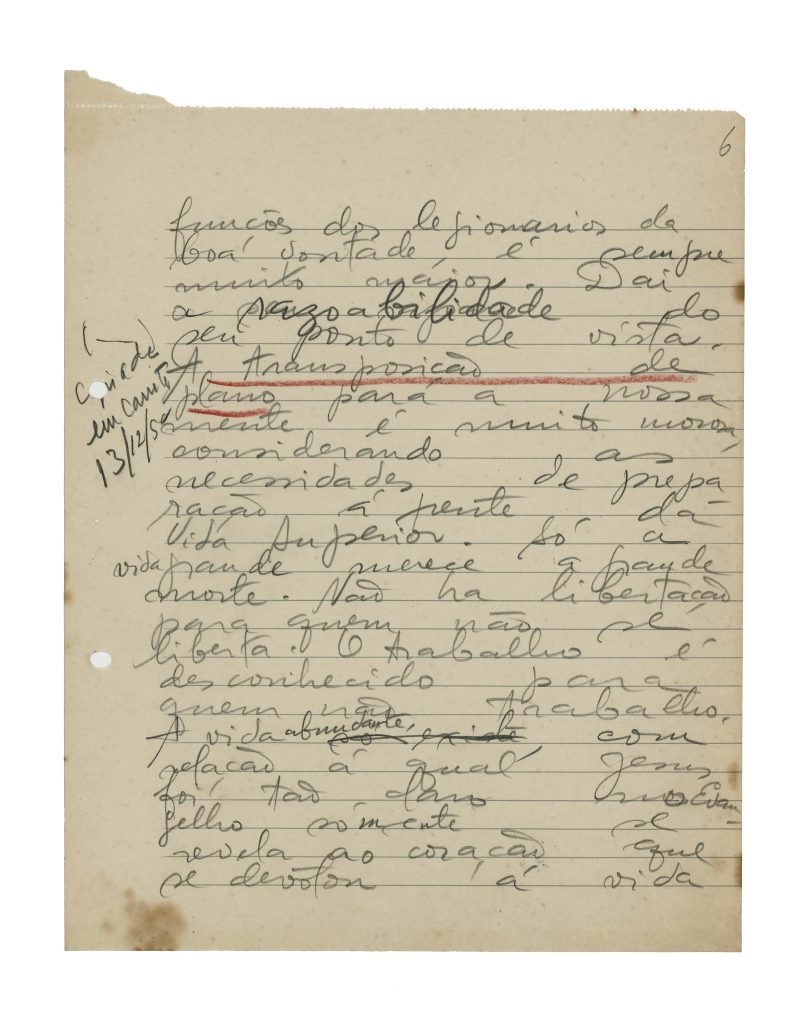 6
funcões dos legionarios da
boá vontade, é sempre
muito maior. Dai
a razoabilidade do
seu ponto de vista.
A transposicão de
plano pará a nossa
mente é muito morosa,
considerando as
necessidades de prepa
ração á frente da
Vida Superior. Só a
vida grande merece a grande
morte. Não ha libertação
para quem não se
liberta. O trabalho é
desconhecido para
quem não trabalho.
A vida abundante, só existe com
relação á qual Jesus
foi tão claro no Evan-
gelho sómente se
revela ao coração que
se devotou á vida
em
13/12/5